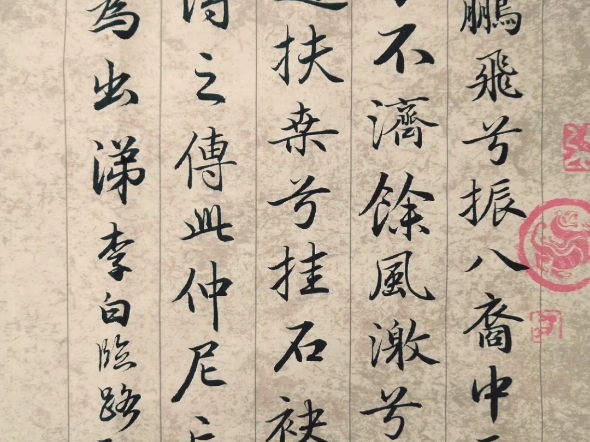 鵬飛兮振八裔中
不濟餘風激兮
扶桒兮挂石袂
得之傳此仲尼亡
為出涕李白臨路